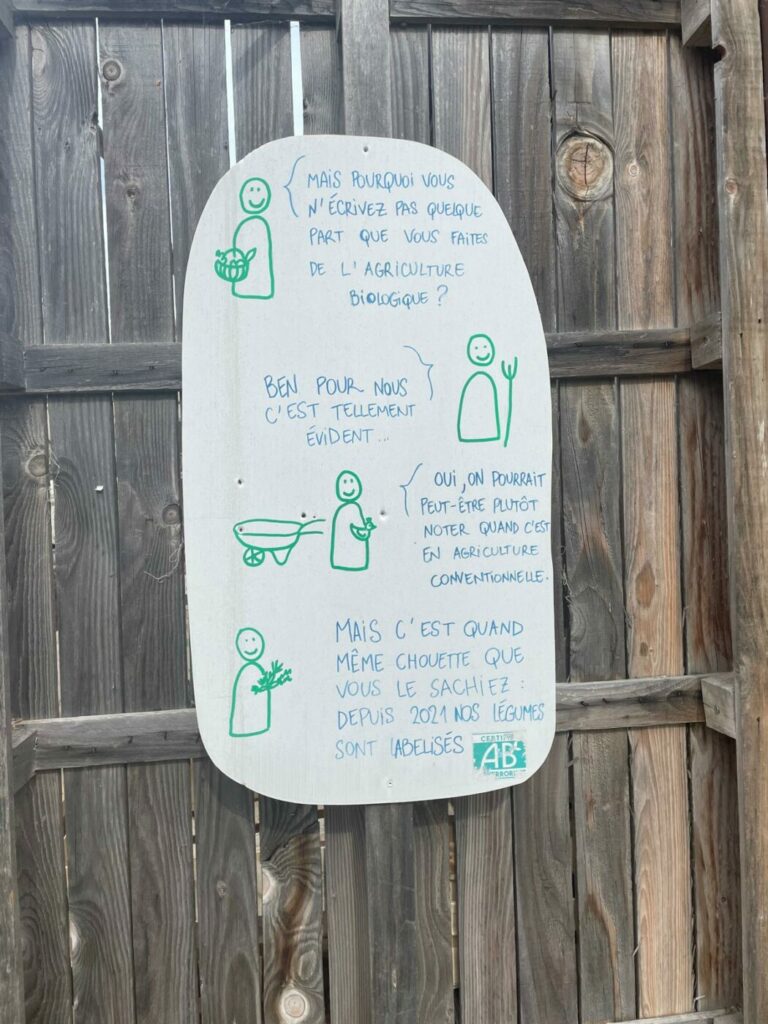 MAIS POURQUOI VOUS
N'ÉCRIVEZ PAS QUELQUE
PART QUE VOUS FAITES
DE L'AGRICULTURE
BIOLOGIQUE ?
BEN POUR NOUS
C'EST TELLEMENT
ÉVIDENT...
OUI, ON POURRAIT
PEUT-ÊTRE PLUTÔT
NOTER QUAND C'EST
EN AGRICULTURE
CONVENTIONNELLE.
MAIS C'EST QUAND
MÊME CHOUETTE QUE
VOUS LE SACHIEZ :
DEPUIS 2021 NOS LÉGUMES
SONT LABELISÉS
AB